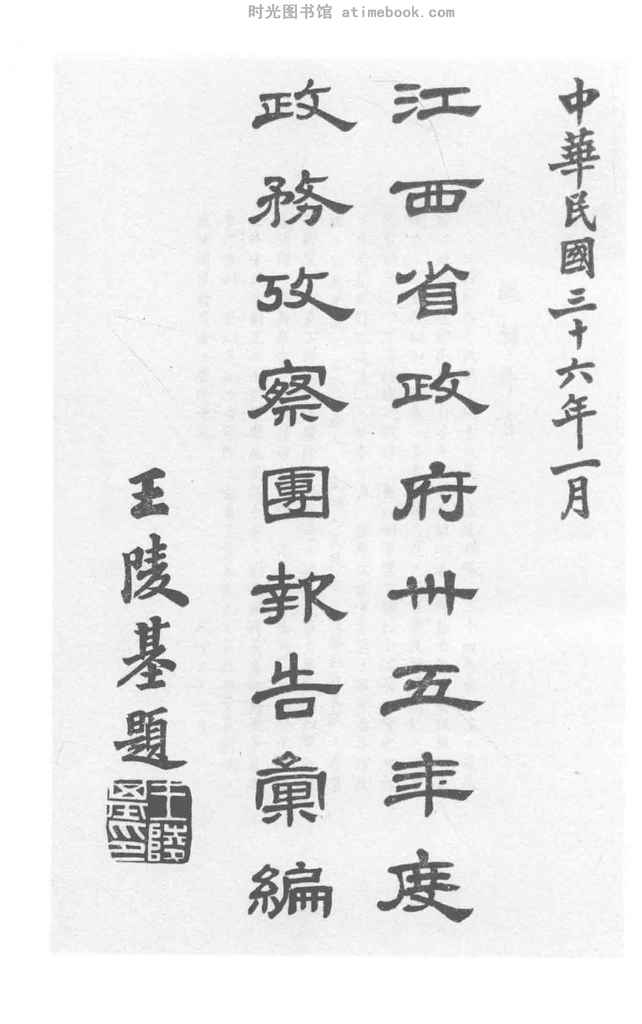 时光图书馆 atimebook.com
中華民國三十六年一月
江西省政府卅五年度
政務攷察團報告彙編
王陵基題
王陵基印